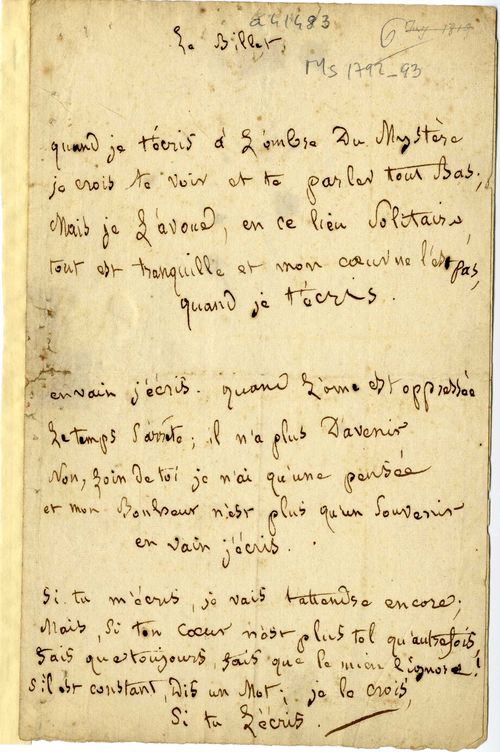 a41483
6 July 1819
Le Billet,
Ms 1792_93
quand je t'écris à L'ombre Du Mystère
je crois te voir et te parler tout Bas,
Mais je L'avoue, en ce lieu Solitaire,
tout est tranquille et mon cœur ne l'est pas,
quand je t'écris.
en vain j'écris. quand L'ame est oppressée
Le temps S'arrète; il n'a plus D'avenir
Non, Loin de toi je n'ai qu'une pensée
et mon Bonheur n'est plus qu'un Souvenir
en vain j'écris.
Si tu m'écris, je vais t'attendre encore;
Mais, Si ton cœur n'est plus tel qu'autrefois,
fais que toujours, fais que le mien L'ignore!
S'il est constant, Dis un Mot; je le crois,
Si tu L'écris.